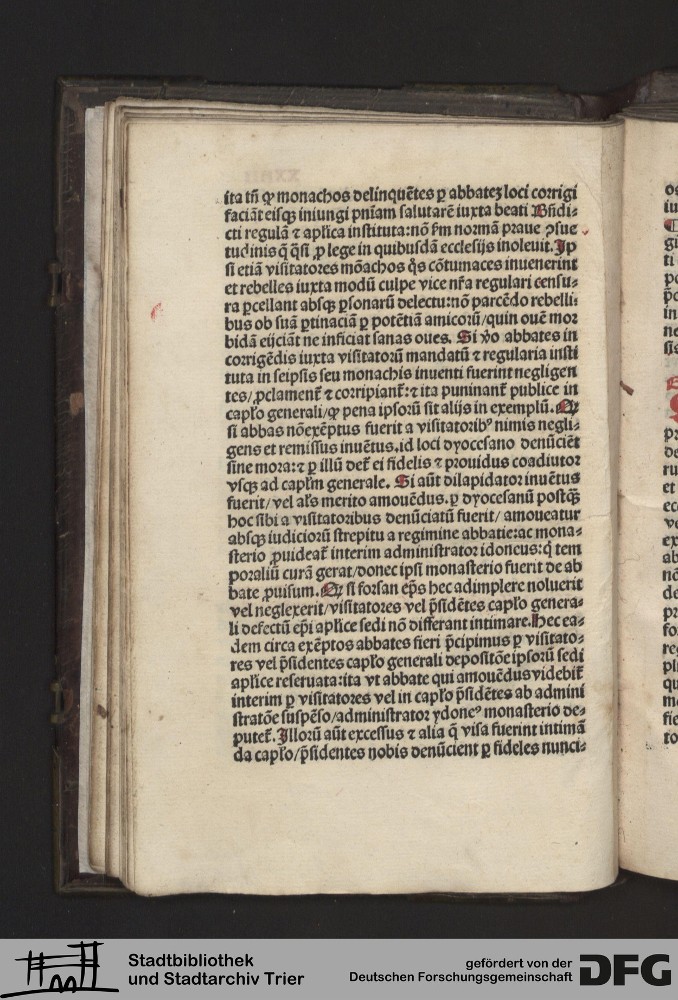 ita tñ ꝙ monachos delinquẽtes ꝑ abbateꝫ loci corrigi
faciãt eisqꝫ iniungi pñiam salutarẽ iuxta beati Bñdi⸗
cti regulã ⁊ aplica instituta: nõ ẜm normã praue ꝯsue
tudinis q̃ q̃si ꝓ lege in quibusdã ecclesijs inoleuit. Ip
si etiã visitatores mõachos q̊s cõtumaces inuenerint
et rebelles iuxta modũ culpe vice nr̃a regulari censu⸗
ra ꝑcellant absqꝫ ꝑsonarũ delectu: nõ parcẽdo rebelli⸗
bus ob suã ꝑtinaciã ꝑ potẽtiã amicorũ/ quin ouẽ mor
bidã eijciãt ne inficiat sanas oues. Si v̊o abbates in
corrigẽdis iuxta visitatorũ mandatũ ⁊ regularia insti
tuta in seipsis seu monachis inuenti fuerint negligen
tes/ ꝓclament̃ ⁊ corripiant̃: ⁊ ita puninant̃ publice in
capl̃o generali/ ꝙ pena ipsorũ sit alijs in exemplũ. Qꝫ
si abbas nõ exẽptus fuerit a visitatoribꝰ nimis negli⸗
gens et remissus inuẽtus. id loci dyocesano denũciẽt
sine mora: ⁊ ꝑ illũ det̃ ei fidelis ⁊ prouidus coadiutor
vsqꝫ ad capl̃m generale. Si aũt dilapidator inuẽtus
fuerit/ vel al̃s merito amouẽdus. ꝑ dyocesanũ postqꝫ̃
hoc sibi a visitatoribus denũciatũ fuerit/ amoueatur
absqꝫ iudiciorũ strepitu a regimine abbatie: ac mona⸗
sterio ꝓuideat̃ interim administrator idoneus: q̇ tem
poraliũ curã gerat/ donec ipsi monasterio fuerit de ab
bate ꝓuisum. Qꝫ si forsan ep̃s hec adimplere noluerit
vel neglexerit/ visitatores vel p̃sidẽtes capl̃o genera⸗
li defectũ ep̃i aplice sedi nõ differant intimare. Hec ea⸗
dem circa exẽptos abbates fieri p̃cipimus ꝑ visitato⸗
res vel p̃sidentes capl̃o generali depositõe ipsorũ sedi
aplice reseruata: ita vt abbate qui amouẽdus videbit̃
interim ꝑ visitatores vel in capl̃o p̃sidẽtes ab admini
stratõe suspẽso/ administrator ydoneꝰ monasterio de⸗
putet̃. Illorũ aũt excessus ⁊ alia q̃ visa fuerint intimã
da capl̃o/ p̃sidentes nobis denũcient ꝑ fideles nunci⸗
Stadtbibliothek
und Stadtarchiv Trier
gefördert von der
Deutschen Forschungsgemeinschaft
DFG